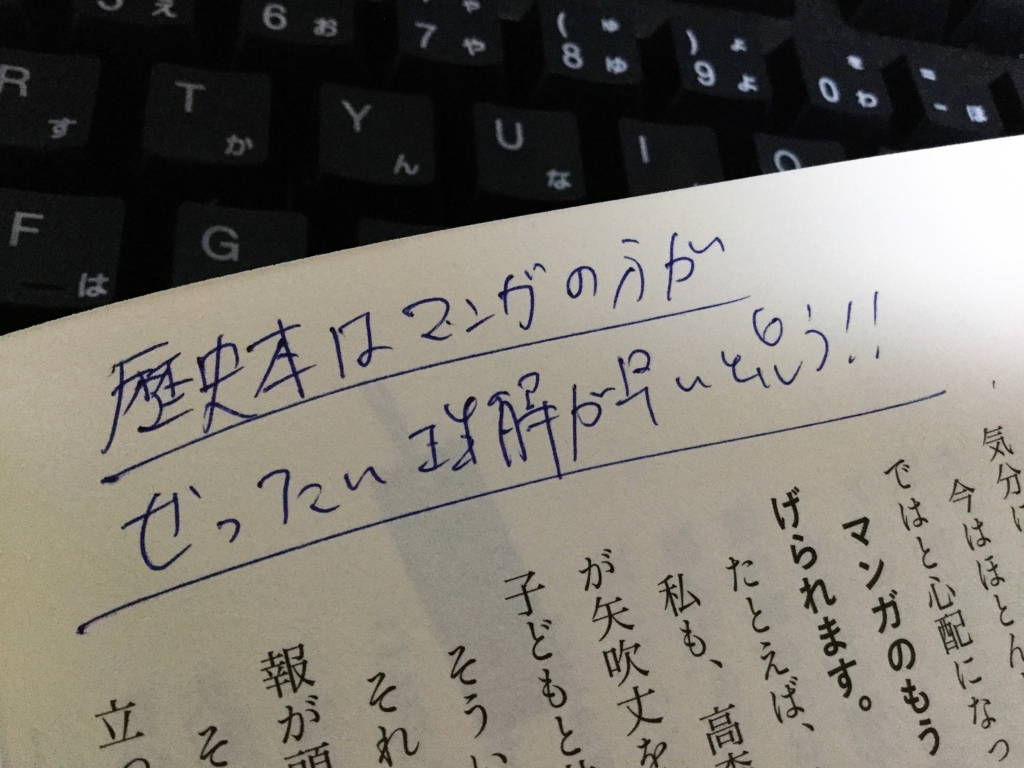 5 え
6 お
7 や ゃ
( 8 ゆ ゅ
) 9 よ ょ
0 わ を
- ほ =
R す
T か
Y ん
U な
I
O
F は
G
歴史本はマンガのうが
ぜったい理解が早いと思う!!
気分に
今はほとん
ではと心配になっ
マンガのもう
げられます。
たとえば、
私も、高
が矢吹丈を
子どもと
そうい
それ
報が頭
そ
立っ